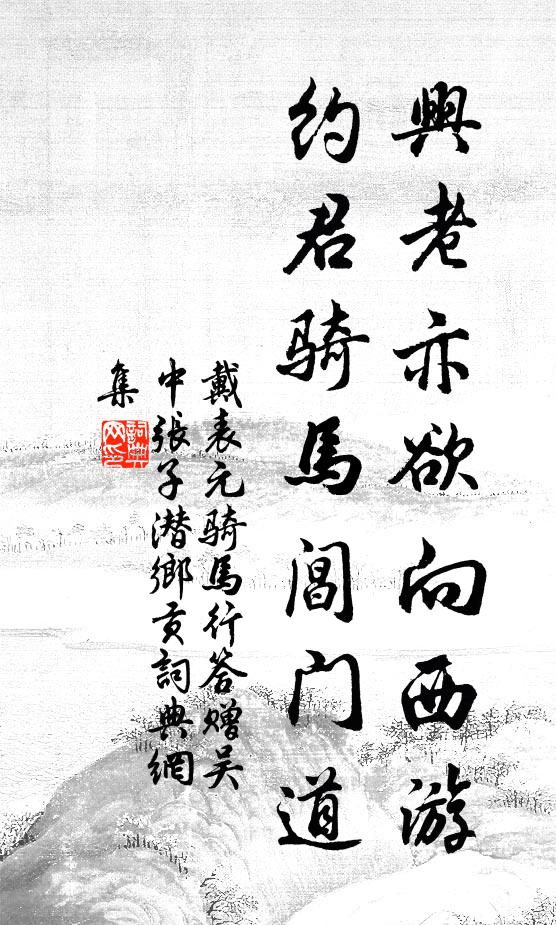 興老亦欲向西游
約君骑馬閶门道
戴表元骑馬行答赠吴
中張子潜鄉貢詞典網
集